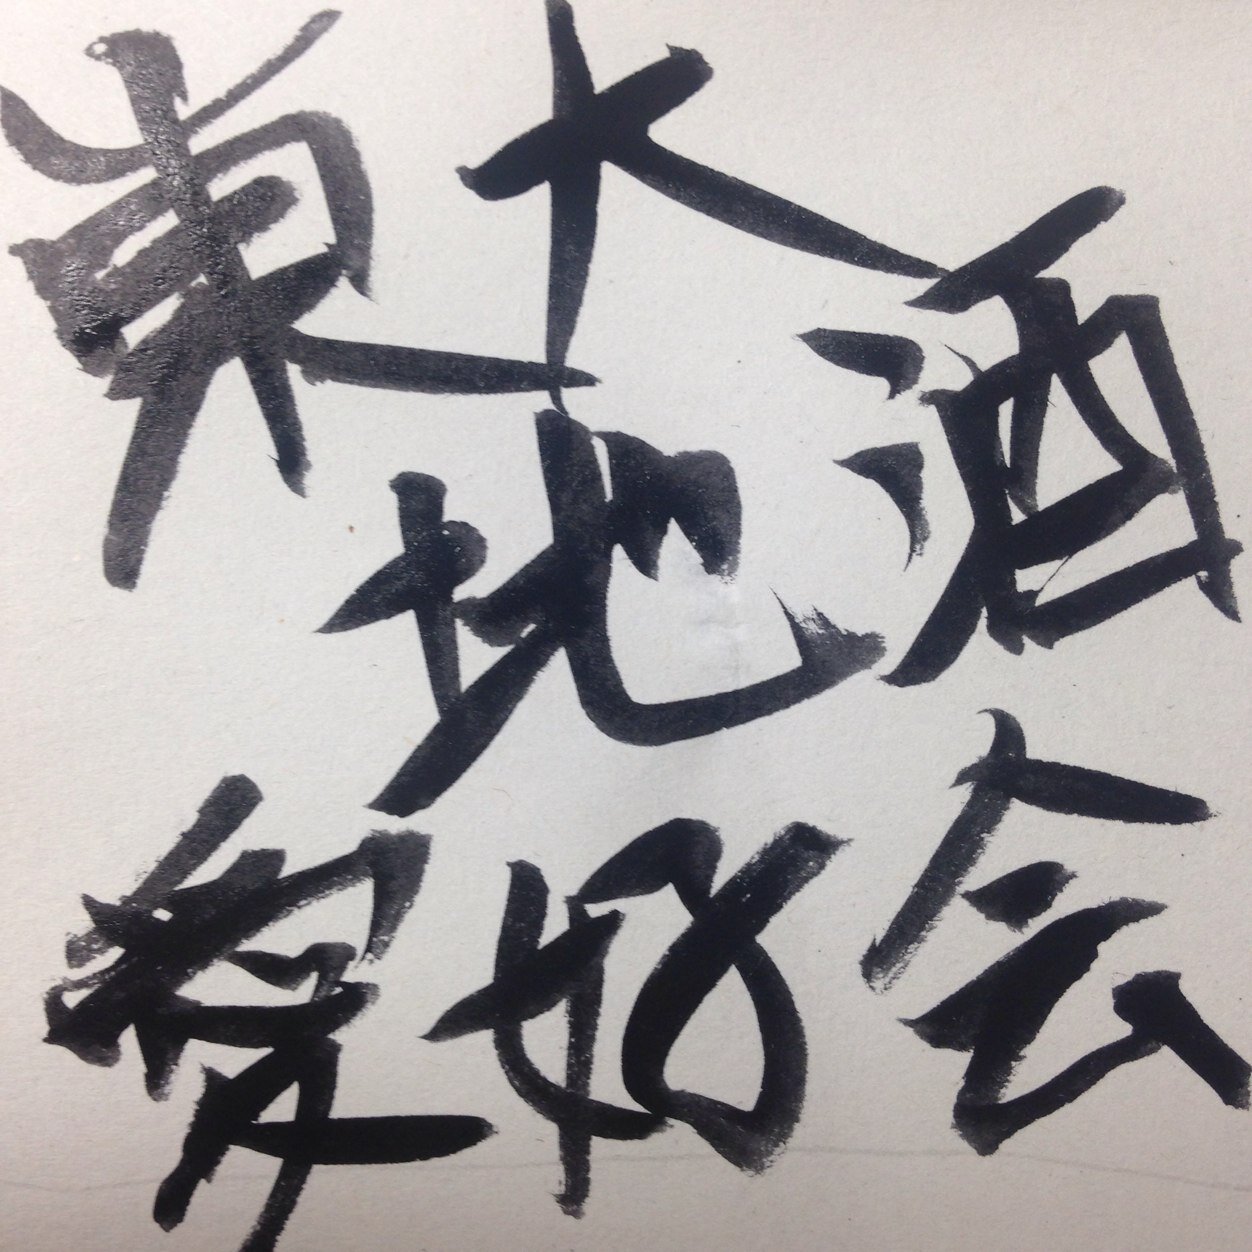 東大
地酒
愛好会